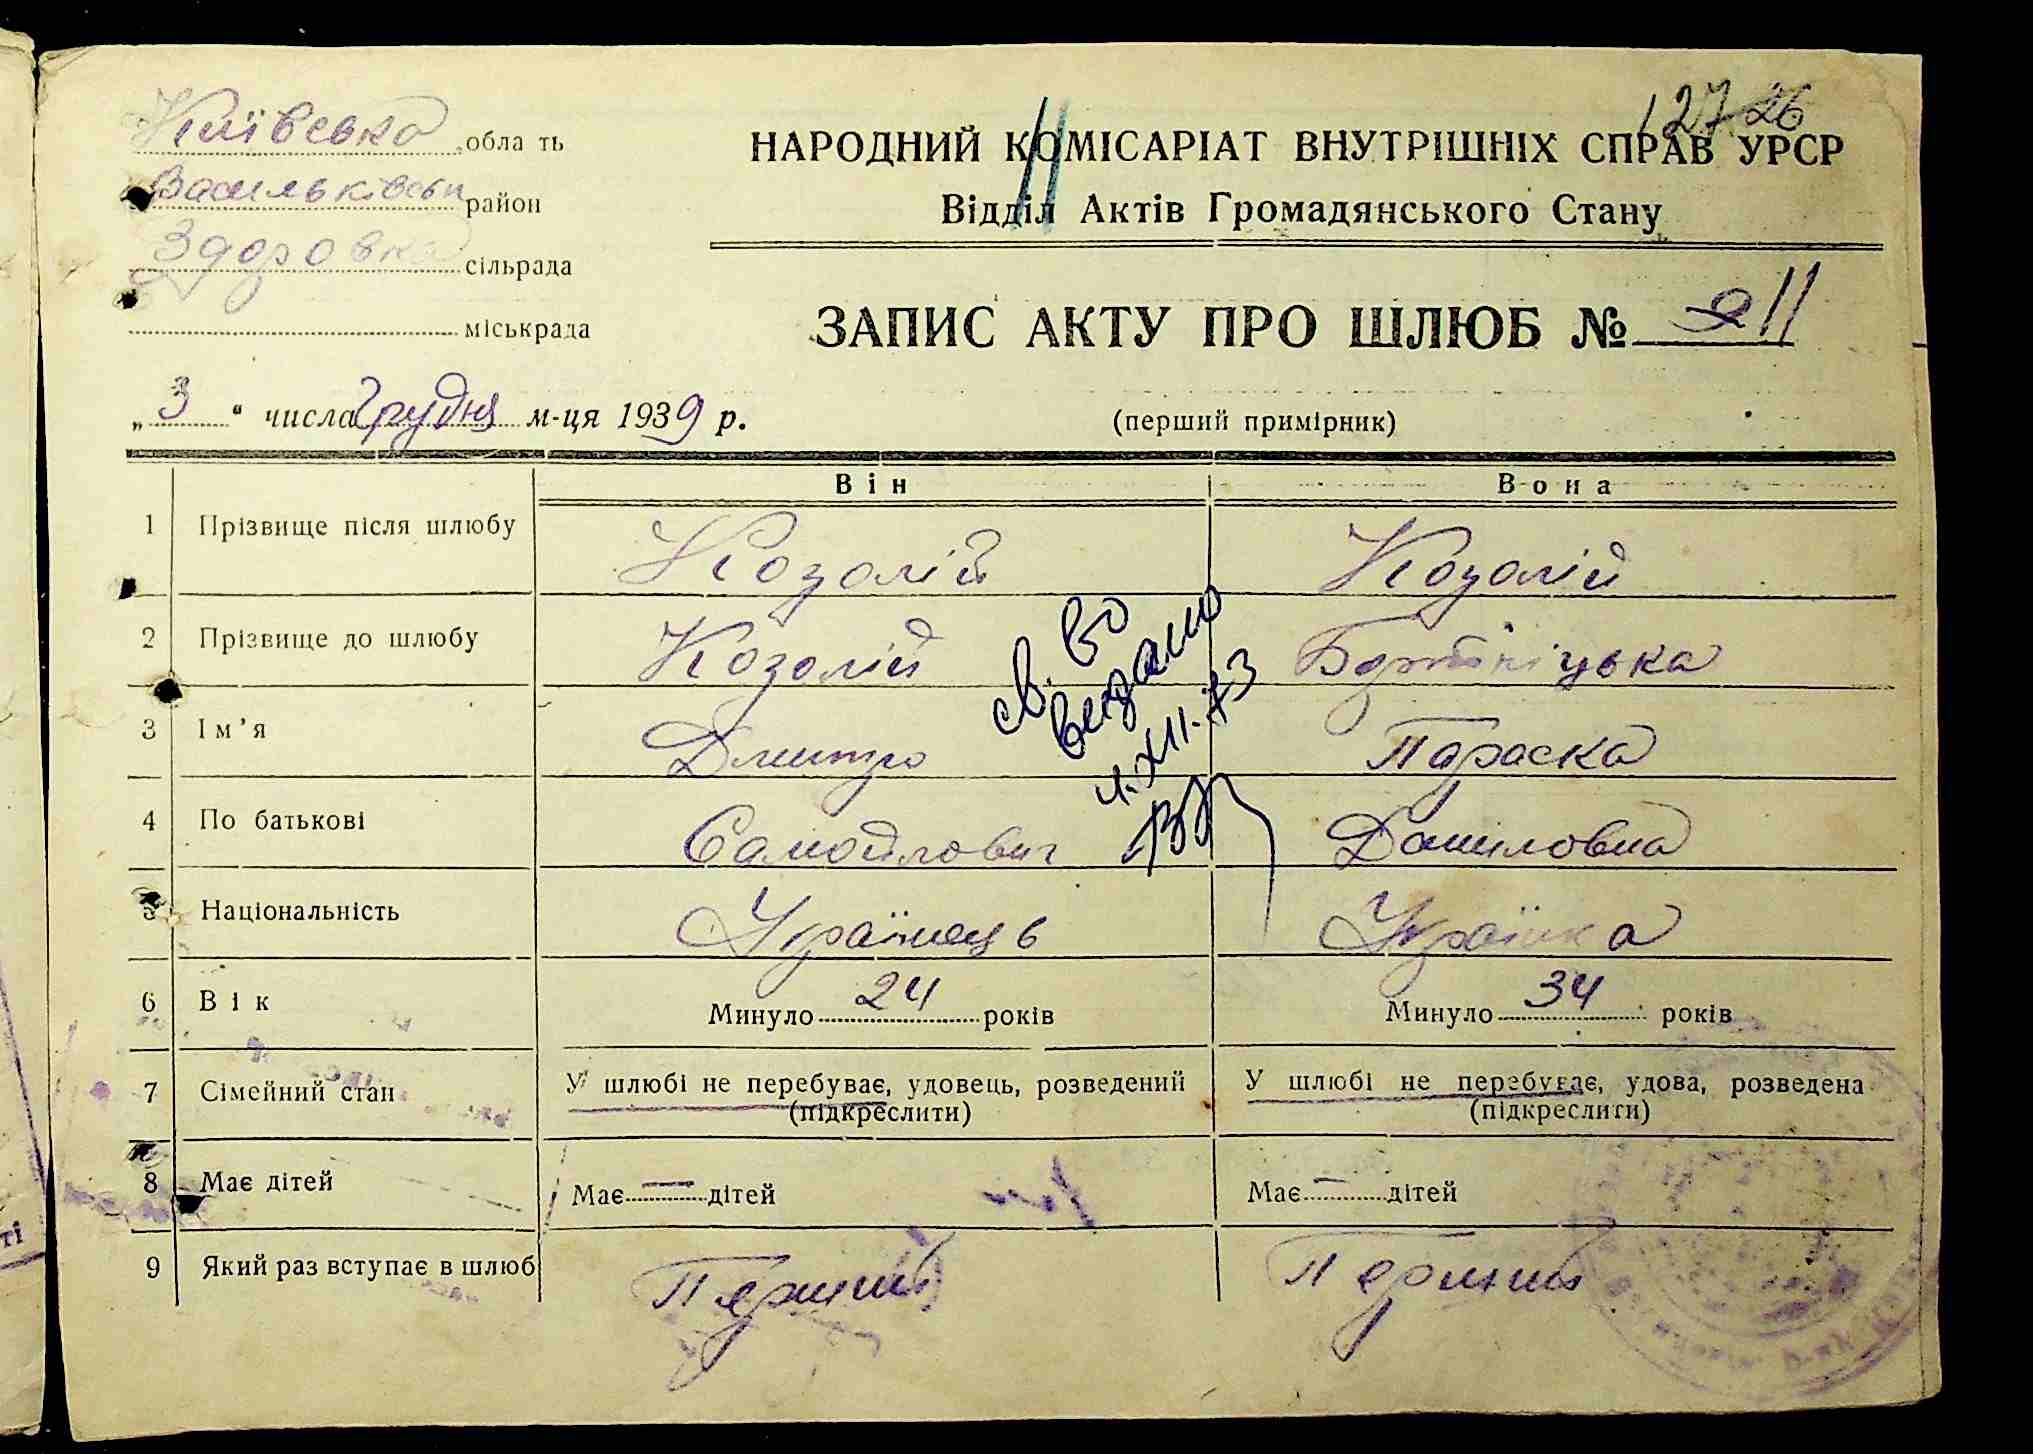 127 26
Київська область
Васильківськ район
Здоровка сільрада
міськрада
НАРОДНИЙ КОМІСАРІАТ ВНУТРІШНІХ СПРАВ УРСР
Відділ Актів Громадянського Стану
ЗАПИС АКТУ ПРО ШЛЮБ № 11
„3“ числа Грудня м-ця 1939 р.
(перший примірник)
Він Вона
1 Прізвище після шлюбу Козолій Козолій
2 Прізвище до шлюбу Козолій
3 Ім'я Дмитро Параска
4 По батькові Самойлович Даниловна
св. во
видано
XII-73
5 Національність Українець Українка
6 Вік Минуло 24 років Минуло 34 років
7 Сімейний стан У шлюбі не перебуває, удовець, розведений У шлюбі не перебуває, удова, розведена
(підкреслити) (підкреслити)
8 Має дітей Має — дітей Має — дітей
9 Який раз вступає в шлюб Перший Перший